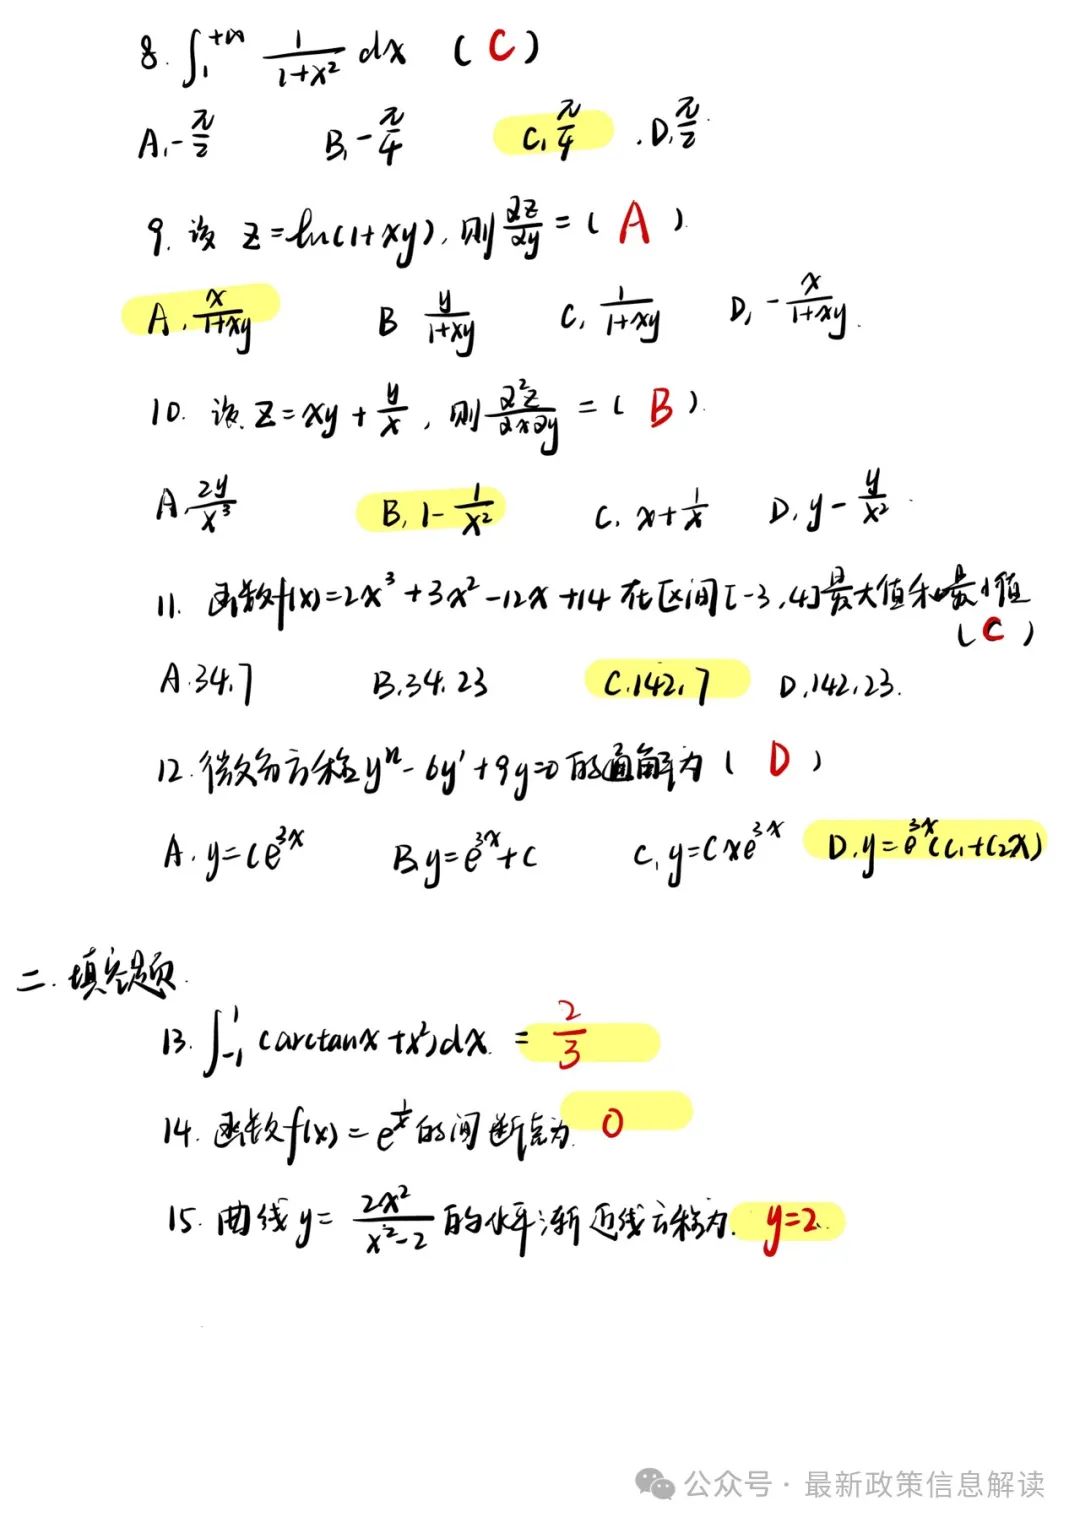 8. ∫₁^{+∞} 1/(1+x²) dx ( C )
A. -π/2 B. -π/4 C. π/4 . D. π/2
9. 设 z=ln(1+xy), 则 ∂z/∂y = ( A ).
A. x/(1+xy) B y/(1+xy) C. 1/(1+xy) D. -x/(1+xy).
10. 设 z=xy+y/x, 则 ∂²z/∂x∂y = ( B ).
A. 2y/x³ B. 1-1/x² C. x+1/x D. y-y/x².
11. 函数f(x)=2x³+3x²-12x+14 在区间[-3,4]最大值和最小值
( C )
A.34,7 B.34,23 C.142,7 D.142,23.
12. 微分方程y''-6y'+9y=0的通解为 ( D )
A. y=Ce^{3x} B. y=e^{3x}+C C. y=Cxe^{3x} D. y=e^{3x}(C₁+C₂x)
二. 填空题.
13. ∫₋₁¹ (arctanx+x²)dx. = 2/3
14. 函数f(x)=e^{1/x}的间断点为. 0
15. 曲线y= 2x²/(x²-2) 的水平渐近线方程为. y=2.
公众号 · 最新政策信息解读